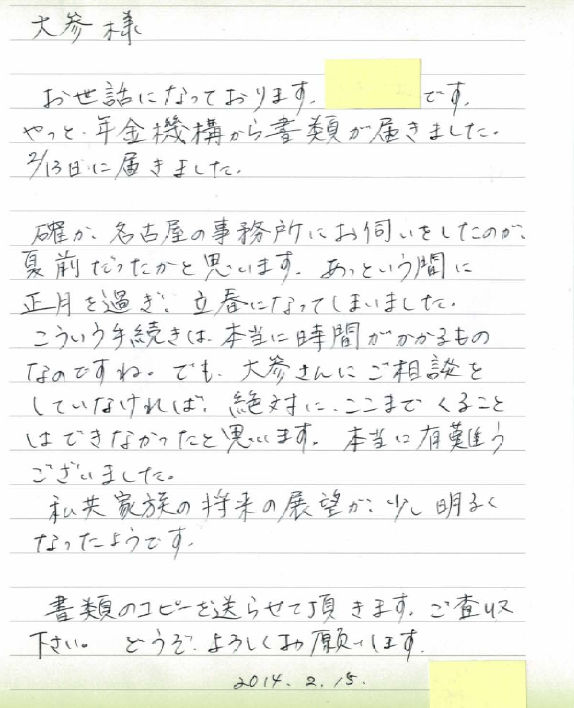 大参様
お世話になっております。です。
やっと、年金機構から書類が届きました。
2/13日に届きました。
確か、名古屋の事務所にお伺いをしたのが、
夏前だったかと思います。あっという間に
正月を過ぎ、立春になってしまいました。
こういう手続きは、本当に時間がかかるもの
なのですね。でも、大参さんにご相談を
していなければ、絶対に、ここまでくること
はできなかったと思います。本当に有難う
ございました。
私共家族の将来の展望が、少し明るく
なったようです。
書類のコピーを送らせて頂きます。ご査収
下さい。どうぞ、よろしくお願いします。
2014.2.15.